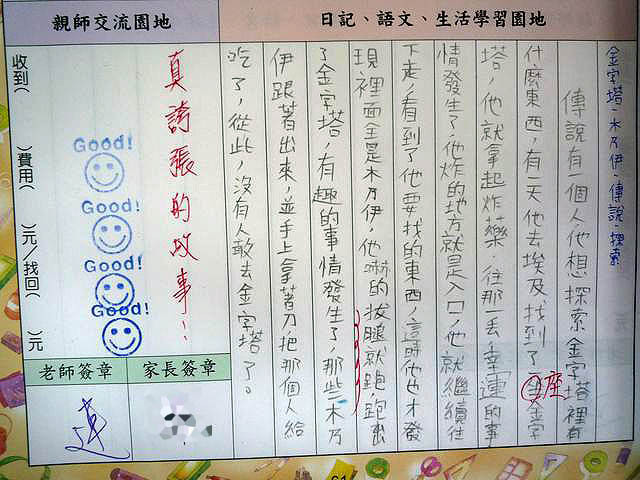 日記、語文、生活學習園地
金字塔、木乃伊、傳說、探索
傳說有一個人他想探索金字塔裡有
什麼東西，有一天他去埃及，找到了一座金字
塔，他就拿起炸藥，往那一丟，幸運的事
情發生了，他炸的地方就是入口，他就繼續往
下走，看到了他要找的東西，這時他也才發
現裡面全是木乃伊，他嚇的拔腿就跑，跑出
了金字塔，有趣的事情發生了，那些木乃
伊跟著出來，並手上拿著刀把那個人給
吃了，從此，沒有人敢去金字塔了。
親師交流園地
真誇張的故事！
Good!
Good!
Good!
Good!
收到（ ）費用（ ）元／找回（ ）元
家長簽章
老師簽章
61